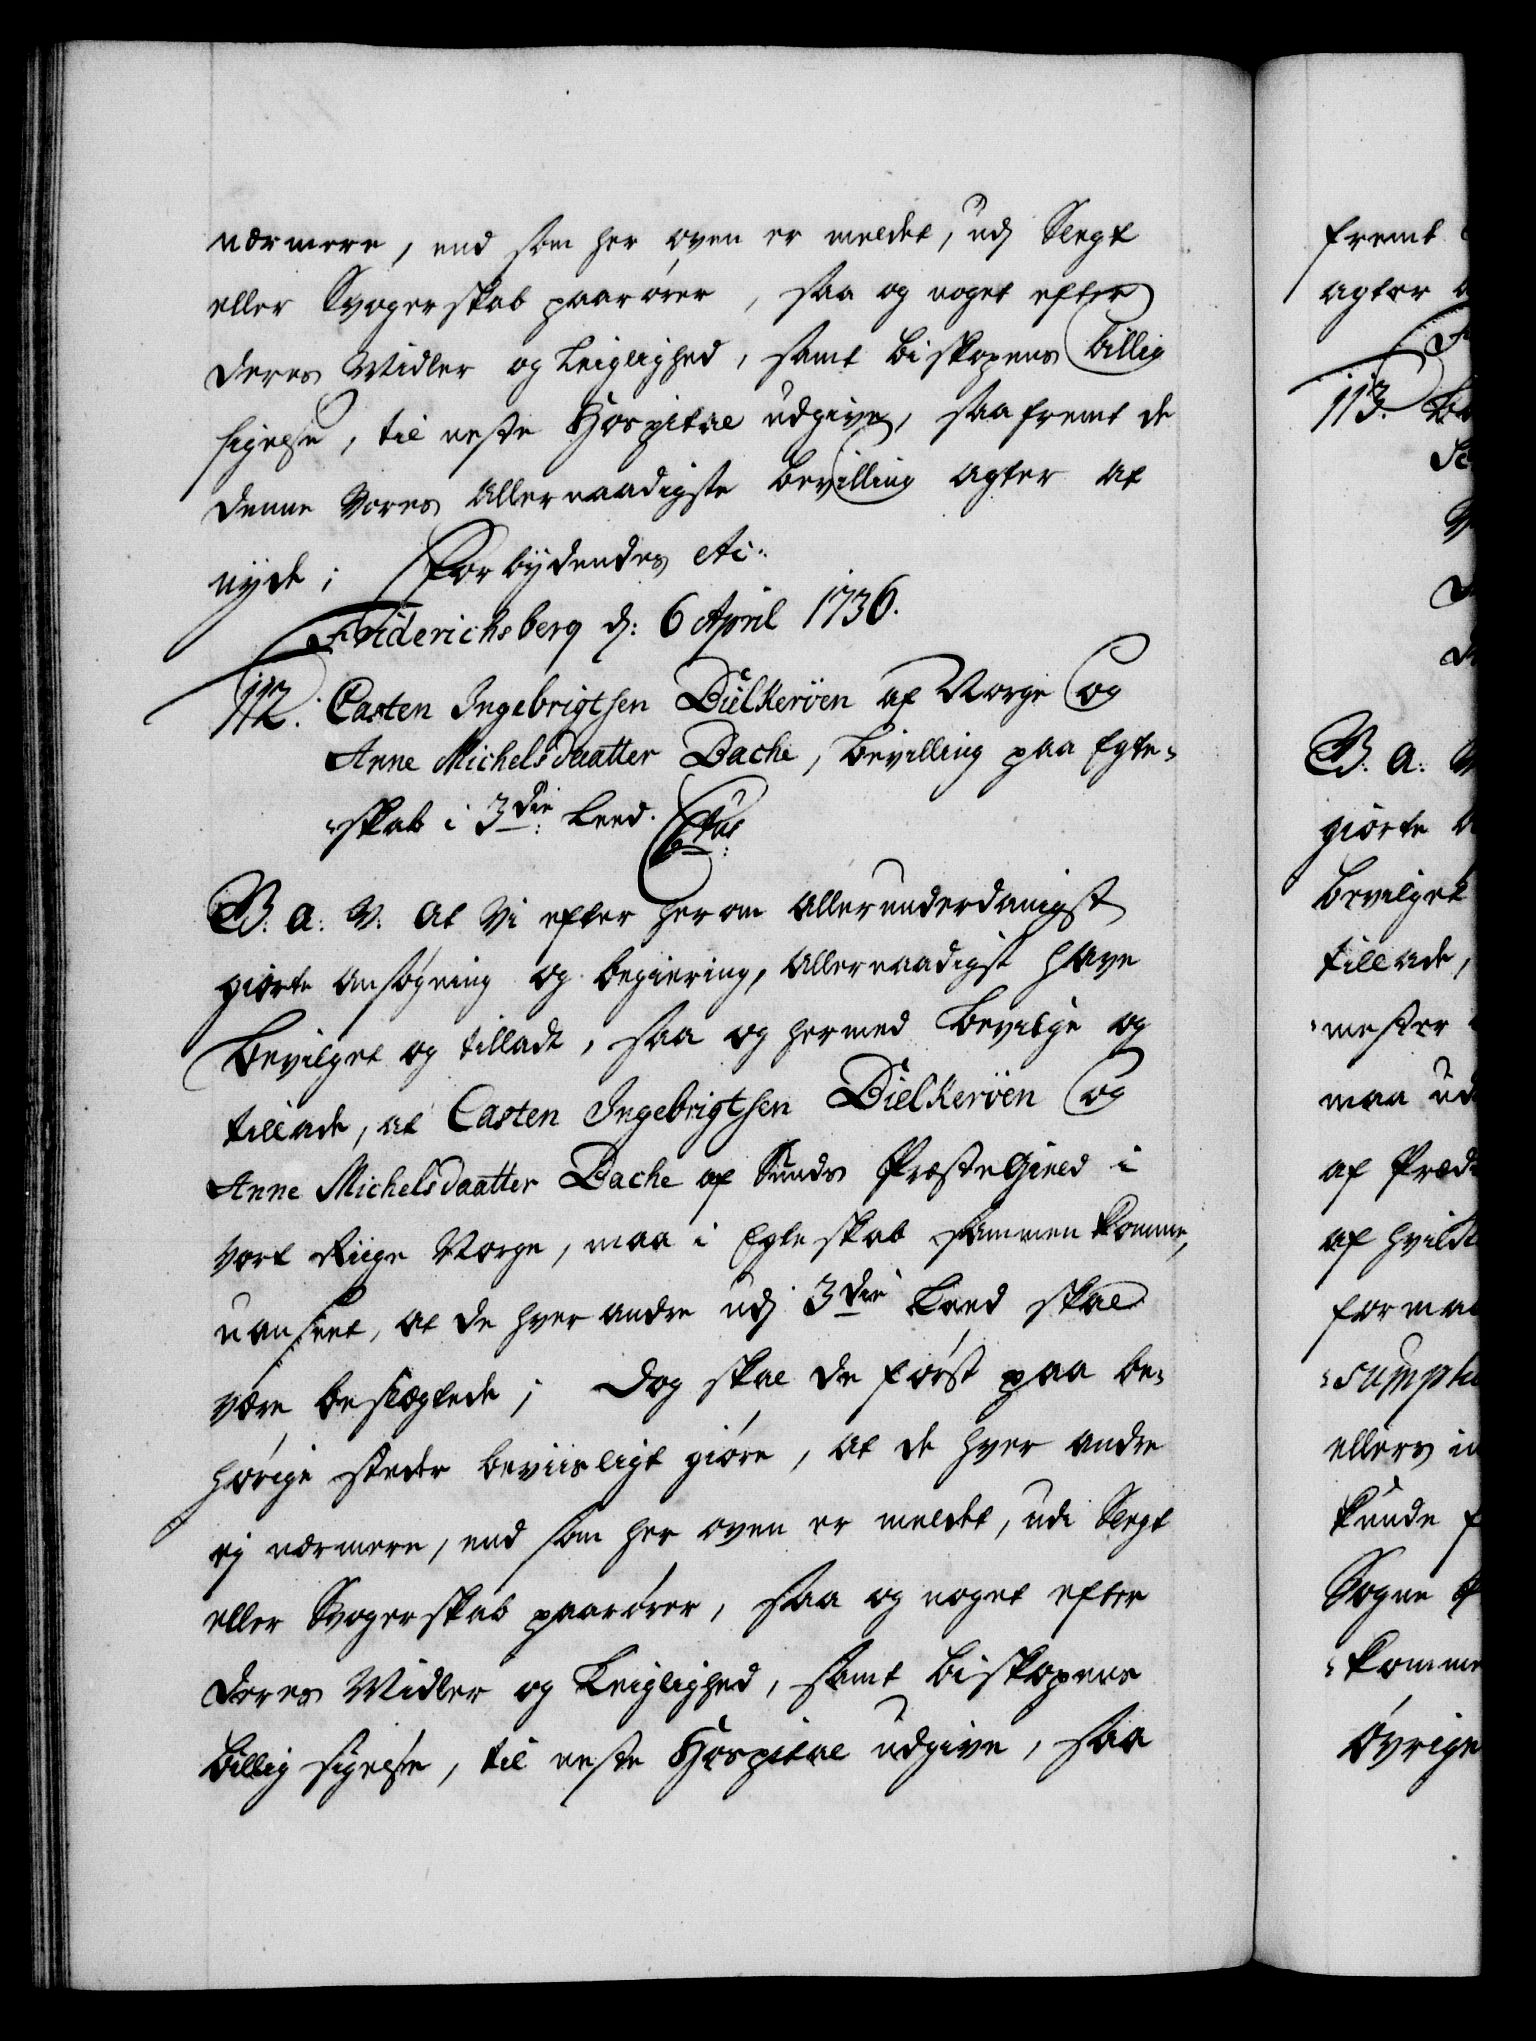 nærmere, end som her oven er meldet, udj Slegt
eller Svogerskab paarører, saa og noget efter
deres Midler og Leiglighed, samt Biskopens billig
sigelse, til neste Hospital udgive, saafremt de
denne Vores Allernaadigste bevilling agter at
nyde; Forbydendes etc:
Friderichsberg d: 6 April 1736.
112. Casten Ingebrigtsen Dielkerøen af Norge og
Anne Michelsdaatter Bache, bevilling paa Egte-
-skab i 3die Leed.
B. a: V. At Vi efter herom allerunderdanigst
giorte ansøgning og begiering, allernaadigst have
bevilget og tilladt, saa og hermed bevilge og
tillade, at Casten Ingebrigtsen Dielkerøen og
Anne Michelsdaatter Bache af Sunds Præstegield i
vort Riige Norge, maa i Egteskab sammenkomme,
uanseet, at de hver andre udj 3die Leed skal
være beslægtede; Dog skal de først paa be-
hørige steder beviisligt giøre, at de hver andre
ej nærmere, end som her oven er meldet, udi Slegt
eller Svogerskab paarører, saa og noget efter
deres Midler og Leiglighed, samt Biskopens
billig sigelse, til neste Hospital udgive, saa
fremt
agter
113.
B. a:
giorte
bevilget
tillade,
-mester
maa ud
af
af hvilk
forma
-sumpt
ellers in
kunde
Sogne
-komme
øvrige